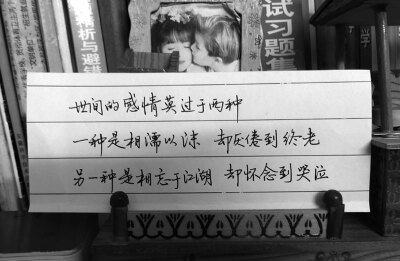 世间的感情莫过于两种
一种是相濡以沫 却厌倦到终老
另一种是相忘于江湖 却怀念到哭泣
析与避错
试习题集